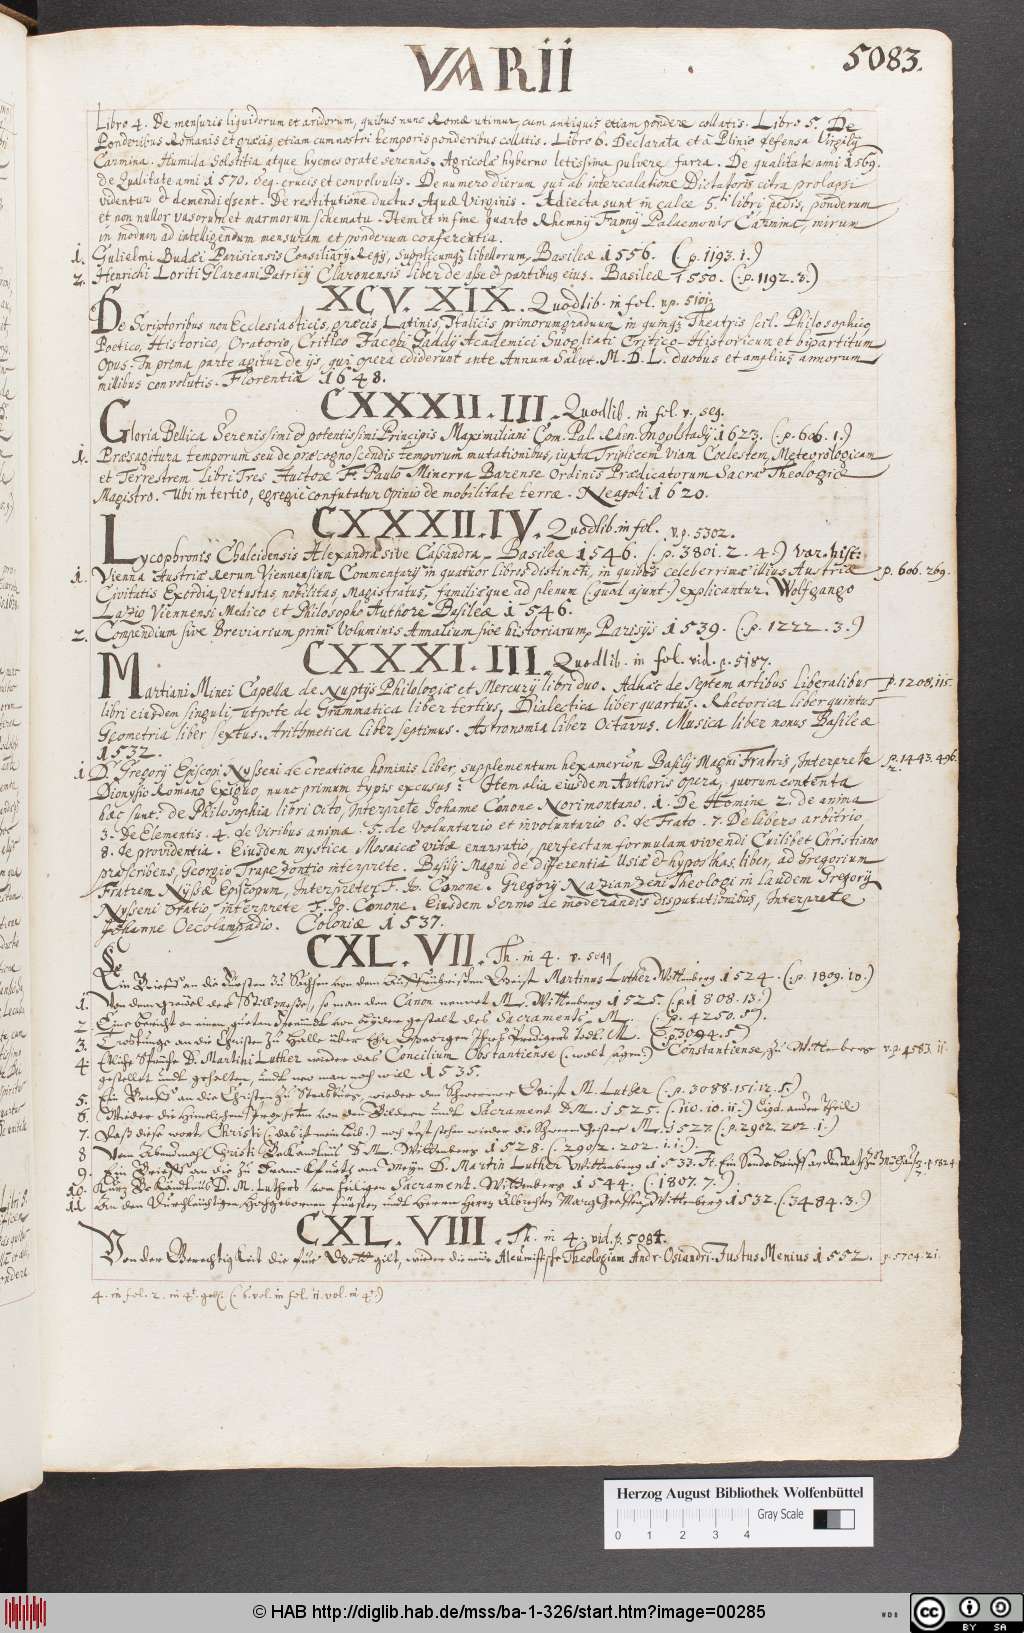 VARII
5083.
Libro 4. De mensuris liquidorum et aridorum, quibus nunc Romæ utimur, cum antiquis etiam pondere collatis. Libro 5. De
Ponderibus Romanis et græcis, etiam cum nostri temporis ponderibus collatis. Libro 6. Declarata et à Plinio defensa Virgilij
Carmina. Humida solstitia atque hyemes orate serenas, Agricolæ hyberno letissima pulvere farra. De qualitate anni 1569.
de Qualitate anni 1570. seq. erucis et convolvulis. De numero dierum qui ab intercalatione Dictatoris citra prolapsi
videntur et demendi essent. De restitutione ductus Aquæ Virginis. Adiecta sunt in calce 5.ti libri pedis, ponderum
et non nullor vasorum et marmorum schemata. Item et in fine quarto Rhemnij Famij Palæmonis Carmina, mirum
in modum ad intelligendum mensuram et ponderum conferentia.
1. Gulielmi Budæi Parisiensis Consiliarij Regij, Supplicumq; libellorum, Basileæ 1556. (:p. 1193. 1.)
2. Henrichi Loriti Glareani Patricij Claronensis liber de asse et partibus eius. Basileæ 1550. (:p. 1192. 3.)
XCV. XIX. Quodlib. in fol. v.p. 5101.
De Scriptoribus non Ecclesiasticis, græcis, Latinis, Italicis primorum graduum in quinq; Theatris scil. Philosophico,
Poetico, Historico, Oratorio, Critico Jacobi Gaddij Academici Svogliati Critico-Historicum et bipartitum
Opus. In prima parte agitur de ijs, qui opera ediderunt ante Annum Salut. M.D.L. duobus et amplius annorum
millibus convolutis. Florentiæ 1648.
CXXXII. III. Quodlib. in fol. v. seq.
Gloria Bellica Serenissimi et potentissimi Principis Maximiliani Com. Pal. Rhen. Ingolstadij 1623. (:p. 606. 1.)
1. Præsagitura temporum seu de præcognoscendis temporum mutationibus, iuxta Triplicem viam Coelestem, Meteorologicam
et Terrestrem Libri Tres Auctore F. Paulo Minerva Barense Ordinis Prædicatorum Sacræ Theologiæ
Magistro. Ubi in tertio, egregie confutatur opinio de mobilitate terræ. Neapoli 1620.
CXXXII. IV. Quodlib. in fol. v.p. 5302.
Lycophronis Chalcidensis Alexandra sive Cassandra. Basileæ 1546. (:p. 3801. 2. 4.) var. hist:
1. Vienna Austriæ Rerum Viennensium Commentarij in quatuor libros distincti, in quibus celeberrimæ illius Austriæ p. 606. 269.
Civitatis Exordia, vetustas, nobilitas, Magistratus, familiæque ad plenum (quod ajunt) explicantur. Wolfgango
Lazio Viennensi Medico et Philosopho Authore Basileæ 1546.
2. Compendium sive Breviarium primi Voluminis Annalium sive historiarum, Parisijs 1539. (:p. 1222. 3.)
CXXXI. III. Quodlib. in fol. vid. p. 5187.
Martiani Minei Capellæ de Nuptijs Philologiæ et Mercurij libri duo. Adhæc de septem artibus liberalibus p. 1208. 115.
libri eiusdem singuli, utpote de Grammatica liber tertius, Dialectica liber quartus. Rhetorica liber quintus
Geometria liber sextus. Arithmetica liber septimus. Astronomia liber Octavus. Musica liber nonus Basileæ
1532.
1 D. Gregorij Episcopi Nysseni de Creatione hominis liber, supplementum hexameron Basilij Magni Fratris, Interprete p. 1443. 496.
Dionysio Romano Exiguo, nunc primum typis excusus: Item alia eiusdem Authoris opera, quorum contenta
hæc sunt: de Philosophia libri Octo, Interprete Johanne Conone Norimontano. 1. De Homine 2. de anima
3. De Elementis. 4. de Viribus anima. 5. de voluntario et involuntario 6. de Fato. 7. De libero arbitrio,
8. de providentia. Eiusdem mystica Mosaicæ vitæ enarratio, perfectam formulam vivendi Cuilibet Christiano
præscribens, Georgio Trapezontio interprete. Basilij Magni de differentia Usiæ et hypostasis, liber, ad Gregorium
Fratrem Nyssæ Episcopum, Interpreter F. Jo. Conone. Gregorij Nazianzeni Theologi in laudem Gregorij
Nysseni Oratio, interprete F. Jo. Conone. Eiusdem Sermo de moderandis disputationibus, Interprete
Johanne Oecolampadio. Coloniæ 1537.
CXL. VII. Th. in 4. v. 5099
Ein Brieff an die Fürsten zu Sachsen von dem auffrührischen Geist Martinus Luther Wittenberg 1524. (:p. 1809. 10.)
1. Von dem greuel der Stillmesse, so man den Canon nennet M. L. Wittenberg 1525. (:p. 1808. 13.)
2. Eins bericht an einen guten freundt von beyder gestalt des Sacraments M. L. (:p. 4250. 5.)
3. Tröstunge an die Christen zu Halle über Er Georgen ihres Predigers todt. M. L. (:p. 3094. 5.)
4 Etliche Sprüche D. Martini Luther wieder das Concilium Obstantiense (wolt sagen) Constantiense, zu Wittenberg v.p. 4583. 11.
gestellet undt gehalten, undt nun man noch will 1535.
5. Ein Brieff an die Christen zu Strasburg, wieder den Schwermer Geist M. Luther (:p. 3088. 151. 12. 5.)
6. Wieder die himlischen Propheten von den Bildern undt Sacrament D. M. L. 1525. (:110. 10. 11.) Eiusd. ander theil
7. Daß diese wort Christi (:das ist mein leib:) noch fest stehen wieder die Schwermgeister M. L. 1527. (:p. 2902. 202. 1.)
8 Vom Abendmahl Christi Bekändtnus D. M. L. Wittenberg 1528. (:2902. 202. 1. 1.)
9. Ein Brieff an die zu Franckfurth am Meyn D. Martin Luther Wittenberg 1533. It. Ein Sendebrieff an den Rat zu Mülhausen p. 1824.
10. Kurtz Bekändtnus D. M. Luthers vom heiligen Sacrament. Wittenberg 1544. (:1807. 7.)
11. An den Durchlauchtigen Hochgebornen fürsten undt Herrn Herrn Albrechten Marggraffen Wittenberg 1532. (:3484. 3.)
CXL. VIII. Th. in 4. vid. p. 5084.
Von der Gerechtigkeit die für Gott gilt, wieder die neue Alcumistische Theologiam Andr. Osiandri. Justus Menius 1552. p. 5704. 21.
4. in fol. 2. in 4º. gebt. (:6. vol. in fol. 11. vol. in 4º.)
Herzog August Bibliothek Wolfenbüttel
Gray Scale
0 1 2 3 4
© HAB http://diglib.hab.de/mss/ba-1-326/start.htm?image=00285
WDB
cc
BY SA